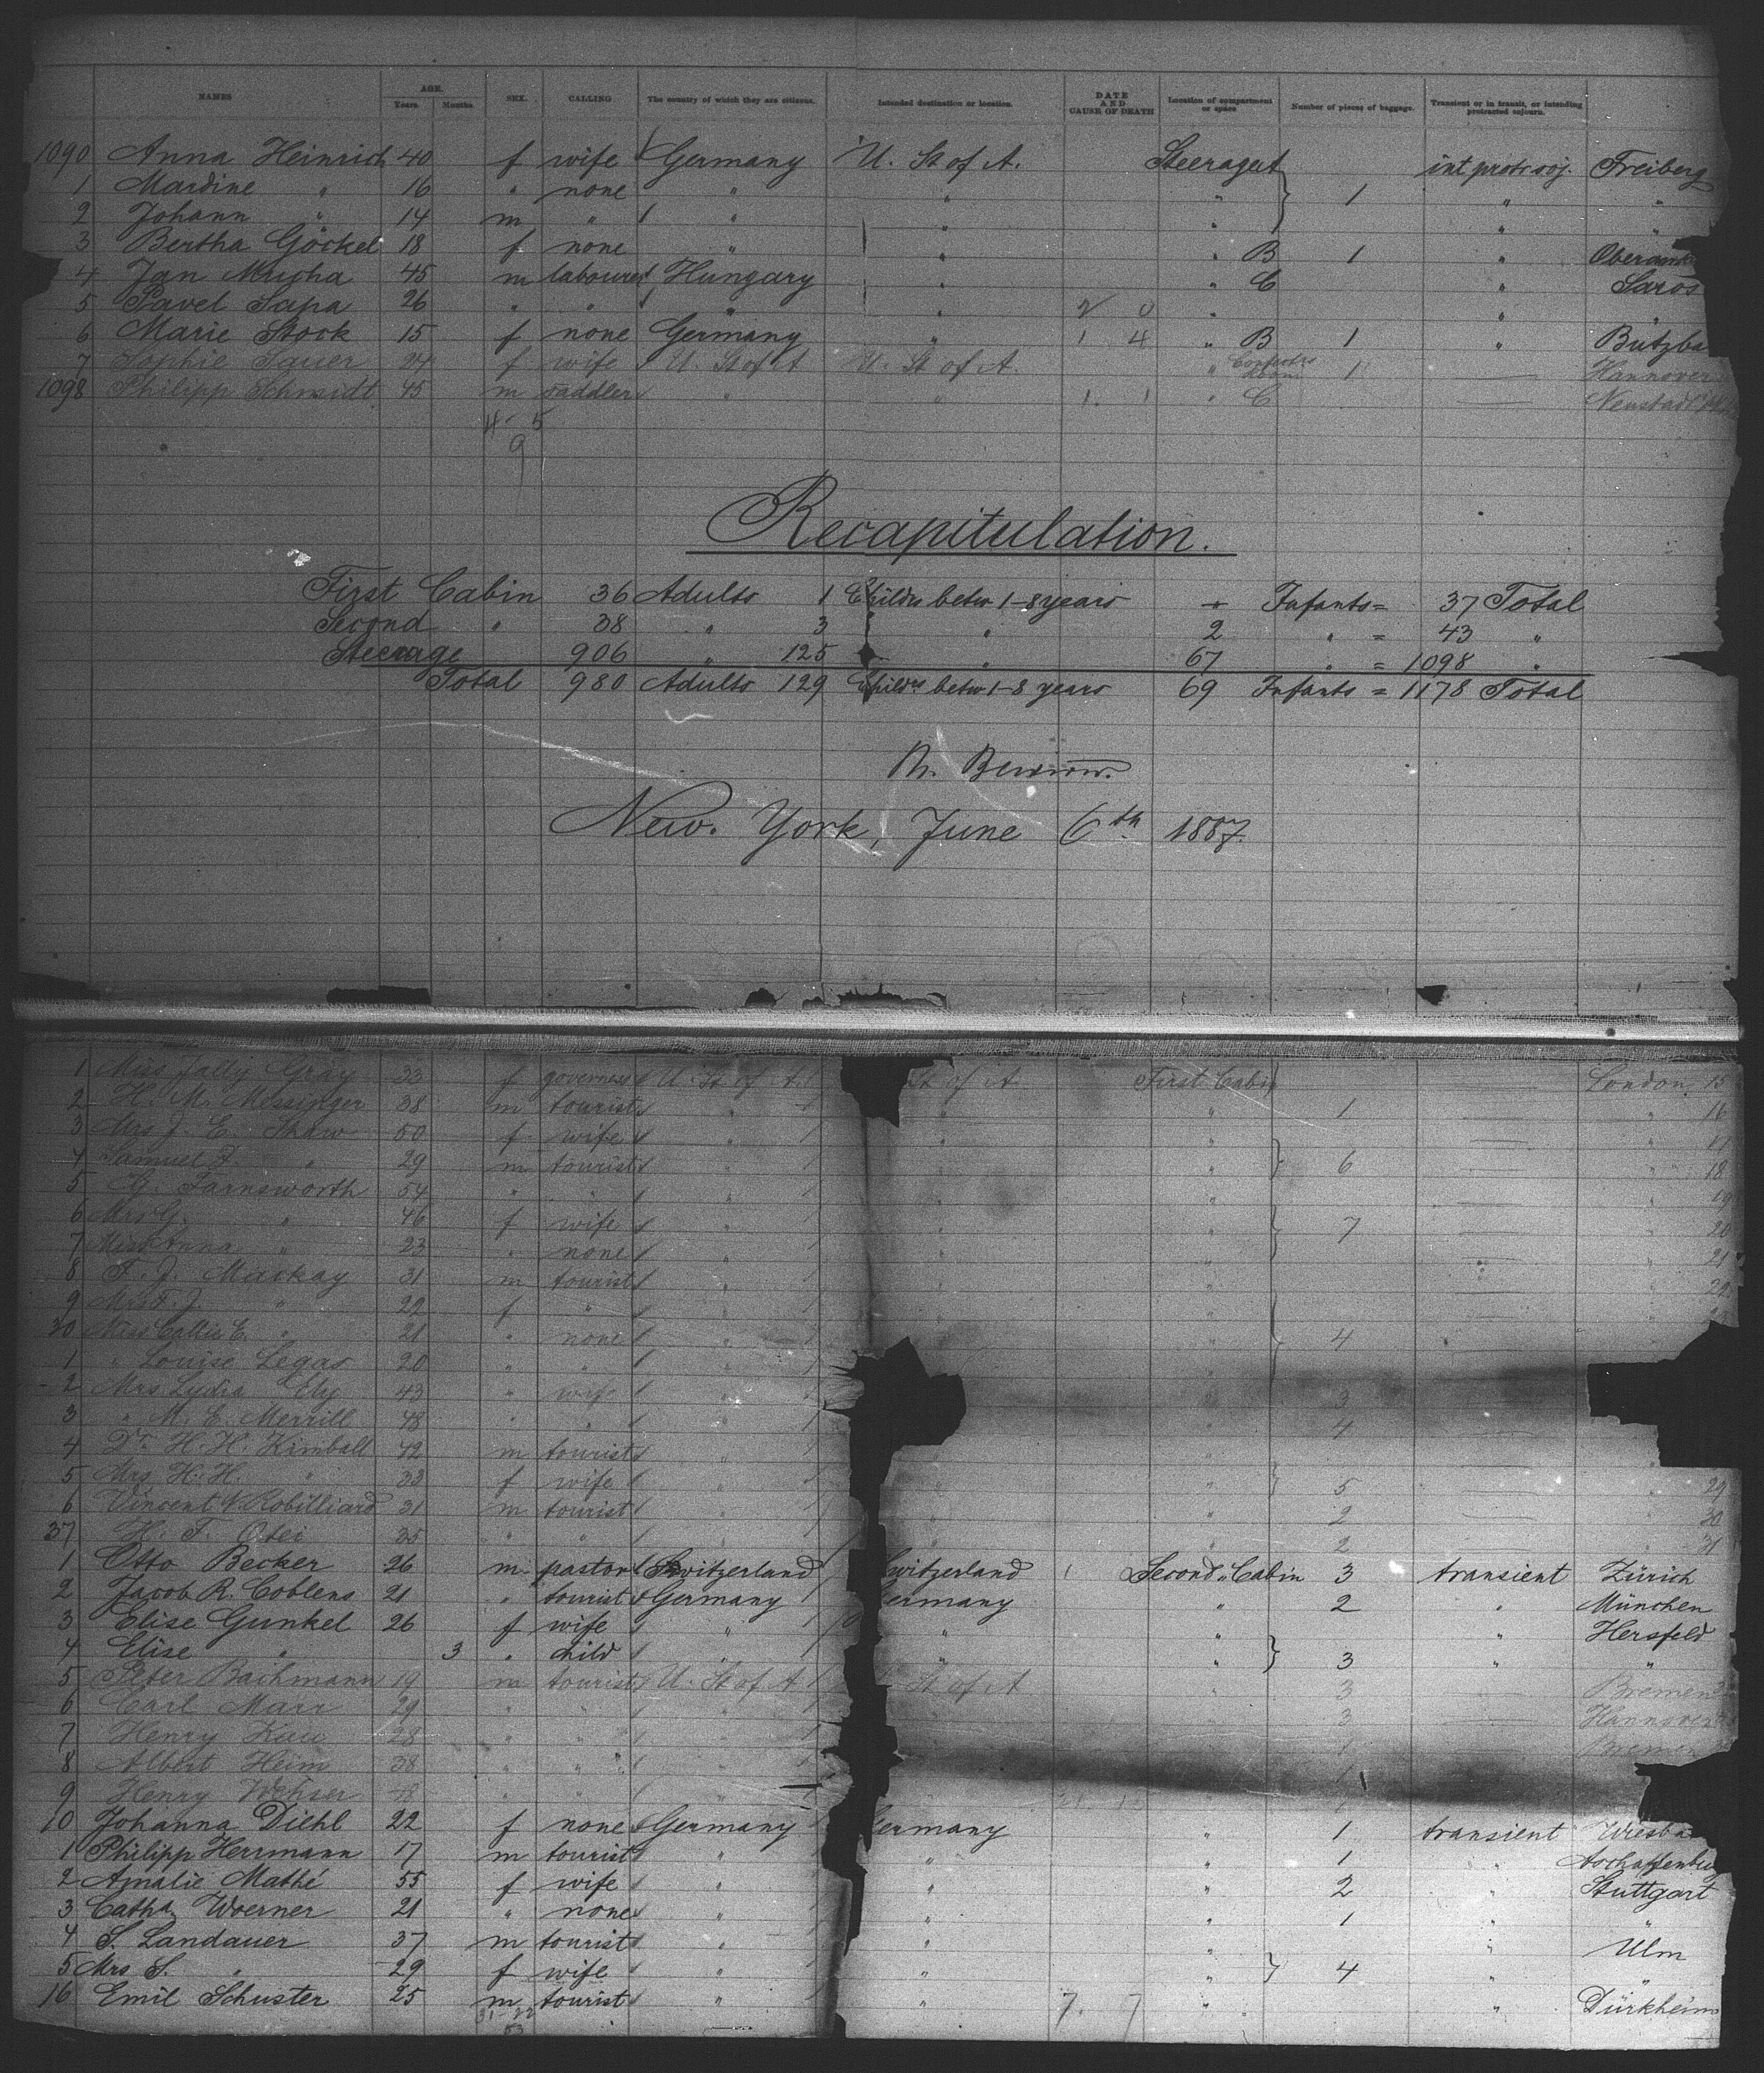 NAMES AGE. Years. Months. SEX. CALLING The country of which they are citizens. Intended destination or location. DATE AND CAUSE OF DEATH Location of compartment or space Number of pieces of baggage. Transient or in transit, or intending protracted sojourn.
1090 Anna Heinrich 40 f wife Germany U. St of A. Steerage int protr soj. Freiberg
1 Mardine " 16 " none " " " 1 " "
2 Johann " 14 m " " " " "
3 Bertha Göckel 18 f none " " " B 1 "
4 Jan Mucha 45 m labourer Hungary " " C " Saros
5 Pavel Sapa 26 " " " " 2 0 " " "
6 Marie Stock 15 f none Germany " 1 4 " B 1 " Butzba
7 Sophie Sauer 24 f wife U. St of A U. St of A. " 1 — Hannover
1098 Philipp Schmidt 45 m saddler " " 1. 1 " C — Neustadt
4 - 5
9
Recapitulation.
First Cabin 36 Adults 1 Childrs betw 1-8 years " Infants = 37 Total
Second " 38 " 3 " " 2 " = 43 "
Steerage 906 " 125 " 67 " = 1098 "
Total 980 Adults 129 Childrs betw 1-8 years 69 Infants = 1178 Total
New. York, June 6th 1887.
1 Miss Gray 33 f governess U. St of A. St of A. First Cabin — London 15
2 H. M. Messinger 38 m tourist " " " 1 — " 16
3 Mrs J. E. Shaw 50 f wife " " " — " 17
4 Samuel " 29 m tourist " " " 6 — " 18
5 G. Farnsworth 54 " " " " " — " 19
6 Mrs G. " 46 f wife " " " 7 — " 20
7 Miss Anna " 23 " none " " " — " 21
8 F. J. Mackay 31 m tourist " " " " 22
9 Mrs F. J. " 22 f " " " " — 23
30 Miss Callie E. " 21 " none " " 4
1 " Louise Legas 20 " " " "
2 Mrs Lydia Ely 43 " wife " " 3
3 " M. E. Merrill 48 " " " " 4
4 Dr. H. H. Kimball 42 m tourist " " "
5 Mrs H. H. " 33 f wife " " " 5 — " 29
6 Vincent V. Robilliard 31 m tourist " " " 2 — " 30
37 H. F. 35 " " " " " 2 — " 31
1 Otto Becker 26 m pastor Switzerland witzerland Second Cabin 3 transient Zürich
2 Jacob R. Coblens 21 " tourist Germany ermany " 2 " München
3 Elise Gunkel 26 f wife " " " " Hersfeld
4 Elise " 3 " child " " " 3 " "
5 Peter Bachmann 19 m tourist U. St of A St of A " 3 — Bremen
6 Carl Marr 29 " " " " 3 — Hannover
7 Henry 28 " " " 1 — Bremen
8 Albert Heim 38 " " " 1
9 Henry " " " 1
10 Johanna Diehl 22 f none Germany ermany " 1 transient Wiesba
1 Philipp Herrmann 17 m tourist " " " 1 " Aschaffenburg
2 Amalie Mathé 55 f wife " " " 2 " Stuttgart
3 Catha Woerner 21 " none " " " 1 " "
4 S. Landauer 37 m tourist " " " " Ulm
5 Mrs S. " 29 f wife " " " 4 " "
16 Emil Schuster 25 m tourist " " 7. 7 " " Dürkheim